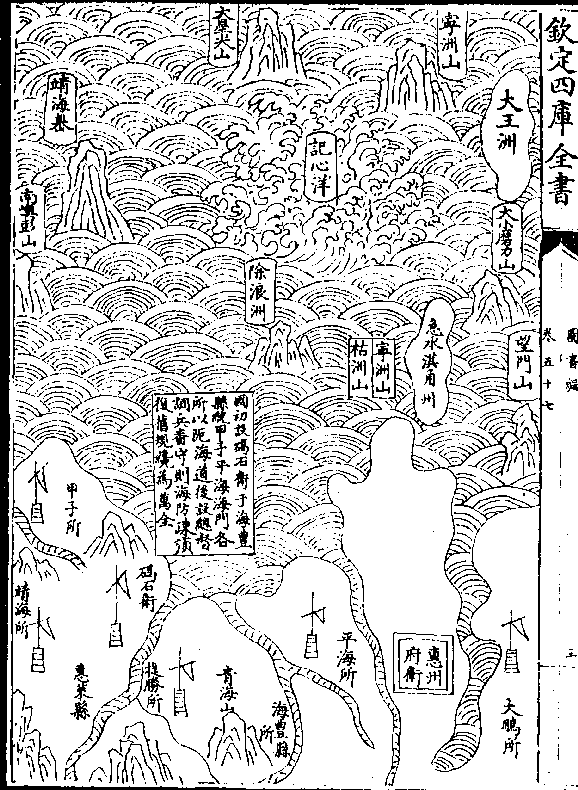 欽定四庫全書
圖書編
卷五十七
三
寧洲山
大星尖山
大王洲
靖海巷
記心洋
大小磨刀山
南輿彭山
除浪洲
急水淇角州
寧洲山
枯洲山
望門山
國初設碣石衛于海豐
縣陵甲子平海海門各
所以阨海道後設總督
調兵番守則海防疎須
復舊規撫為萬全
甲子所
碣石衛
靖海所
平海所
惠州
府衛
捷勝所
青海山
惠萊縣
海豐縣
所
大鵬所